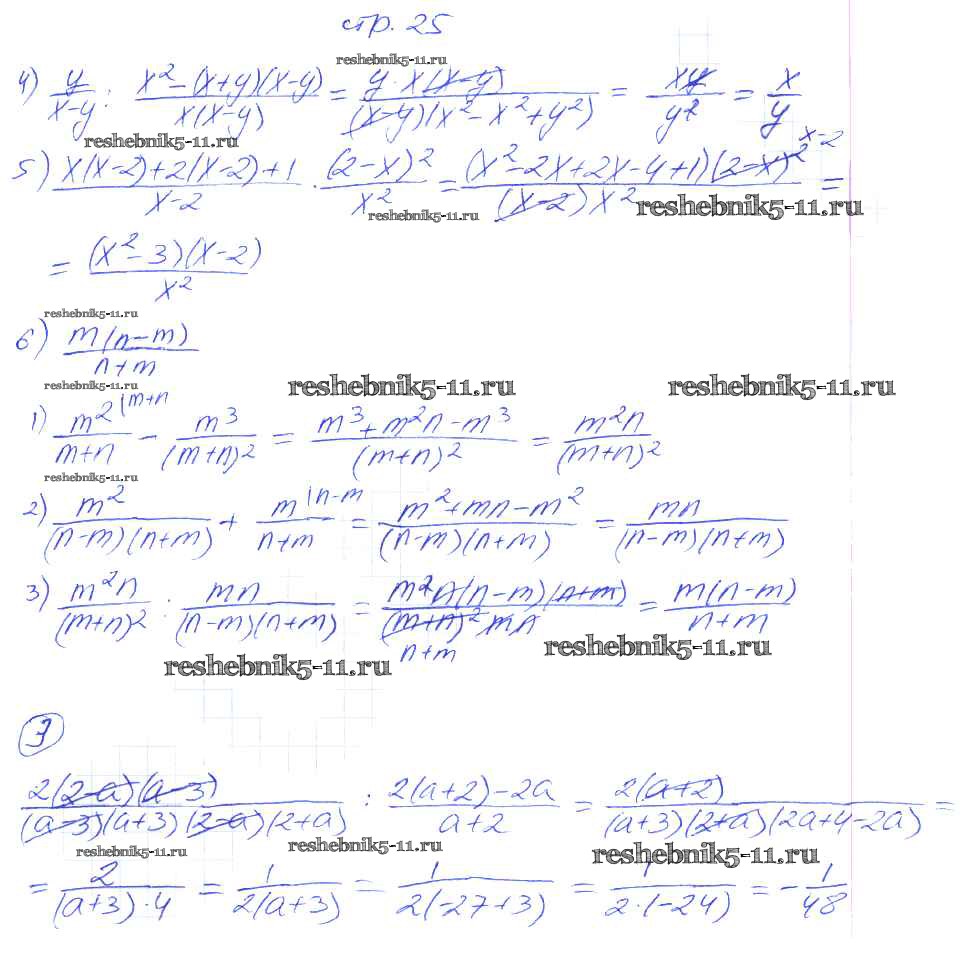 стр. 25
reshebnik5-11.ru
4) y/(x-y) : (x² - (x+y)(x-y))/(x(x-y)) = (y·x(x-y))/((x-y)(x² - x² + y²)) = xy/y² = x/y
reshebnik5-11.ru
5) (x(x-2)+2(x-2)+1)/(x-2) · (2-x)²/x² = ((x²-2x+2x-4+1)(2-x)² x-2)/((x-2)x²) =
reshebnik5-11.ru reshebnik5-11.ru
= ((x²-3)(x-2))/x²
reshebnik5-11.ru
6) (m(n-m))/(n+m)
reshebnik5-11.ru reshebnik5-11.ru reshebnik5-11.ru
1) m² |m+n/(m+n) - m³/(m+n)² = (m³+m²n-m³)/(m+n)² = m²n/(m+n)²
reshebnik5-11.ru
2) m²/((n-m)(n+m)) + m |n-m/(n+m) = (m²+mn-m²)/((n-m)(n+m)) = mn/((n-m)(n+m))
3) m²n/(m+n)² : mn/((n-m)(n+m)) = (m²n(n-m)(n+m))/((m+n)² mn) n+m = (m(n-m))/(n+m)
reshebnik5-11.ru reshebnik5-11.ru
3
(2(2-a)(a-3))/((a-3)(a+3)(2-a)(2+a)) : (2(a+2)-2a)/(a+2) = (2(a+2))/((a+3)(2+a)(2a+4-2a)) =
reshebnik5-11.ru reshebnik5-11.ru reshebnik5-11.ru
= 2/((a+3)·4) = 1/(2(a+3)) = 1/(2(-27+3)) = 1/(2·(-24)) = -1/48